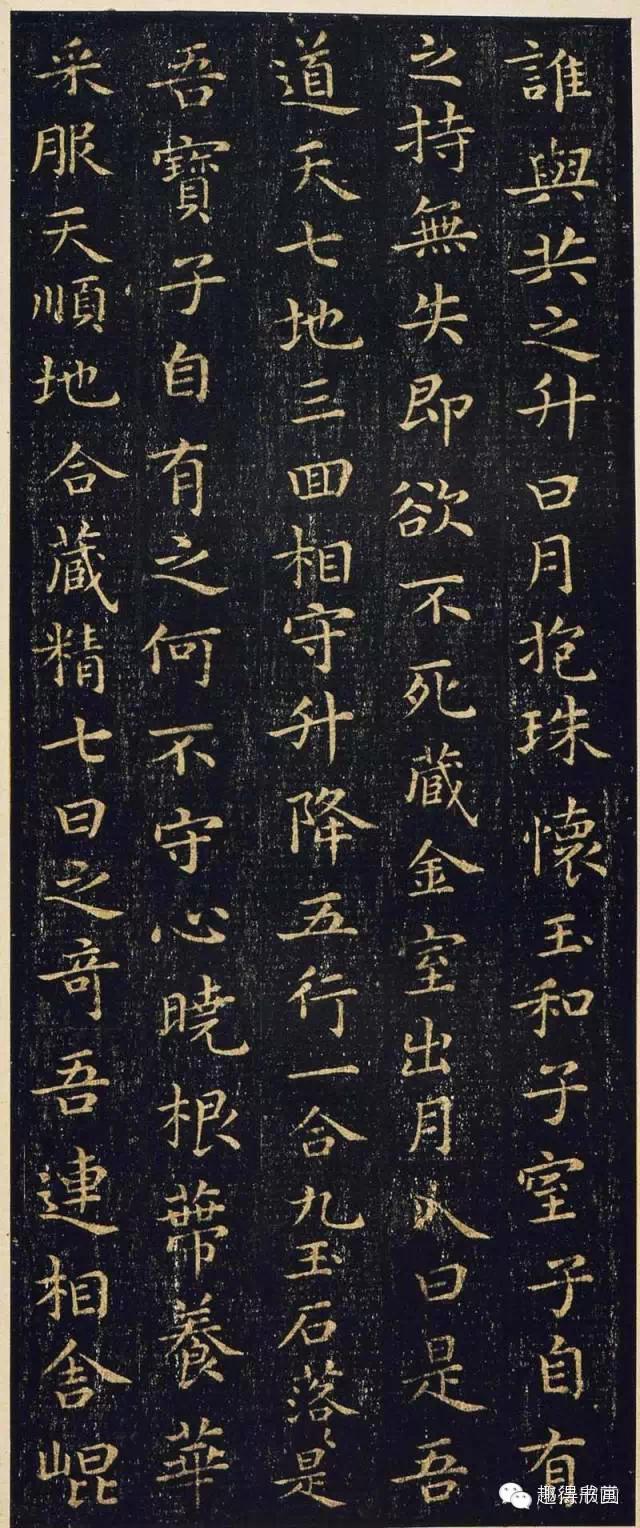 誰與共之升日月抱珠懷玉和子室子自有
之持無失即欲不死藏金室出月入日是吾
道天七地三回相守升降五行一合九玉石落〻是
吾寶子自有之何不守心曉根蔕養華
采服天順地合藏精七日之奇吾連相舍崐
趣得欣賞